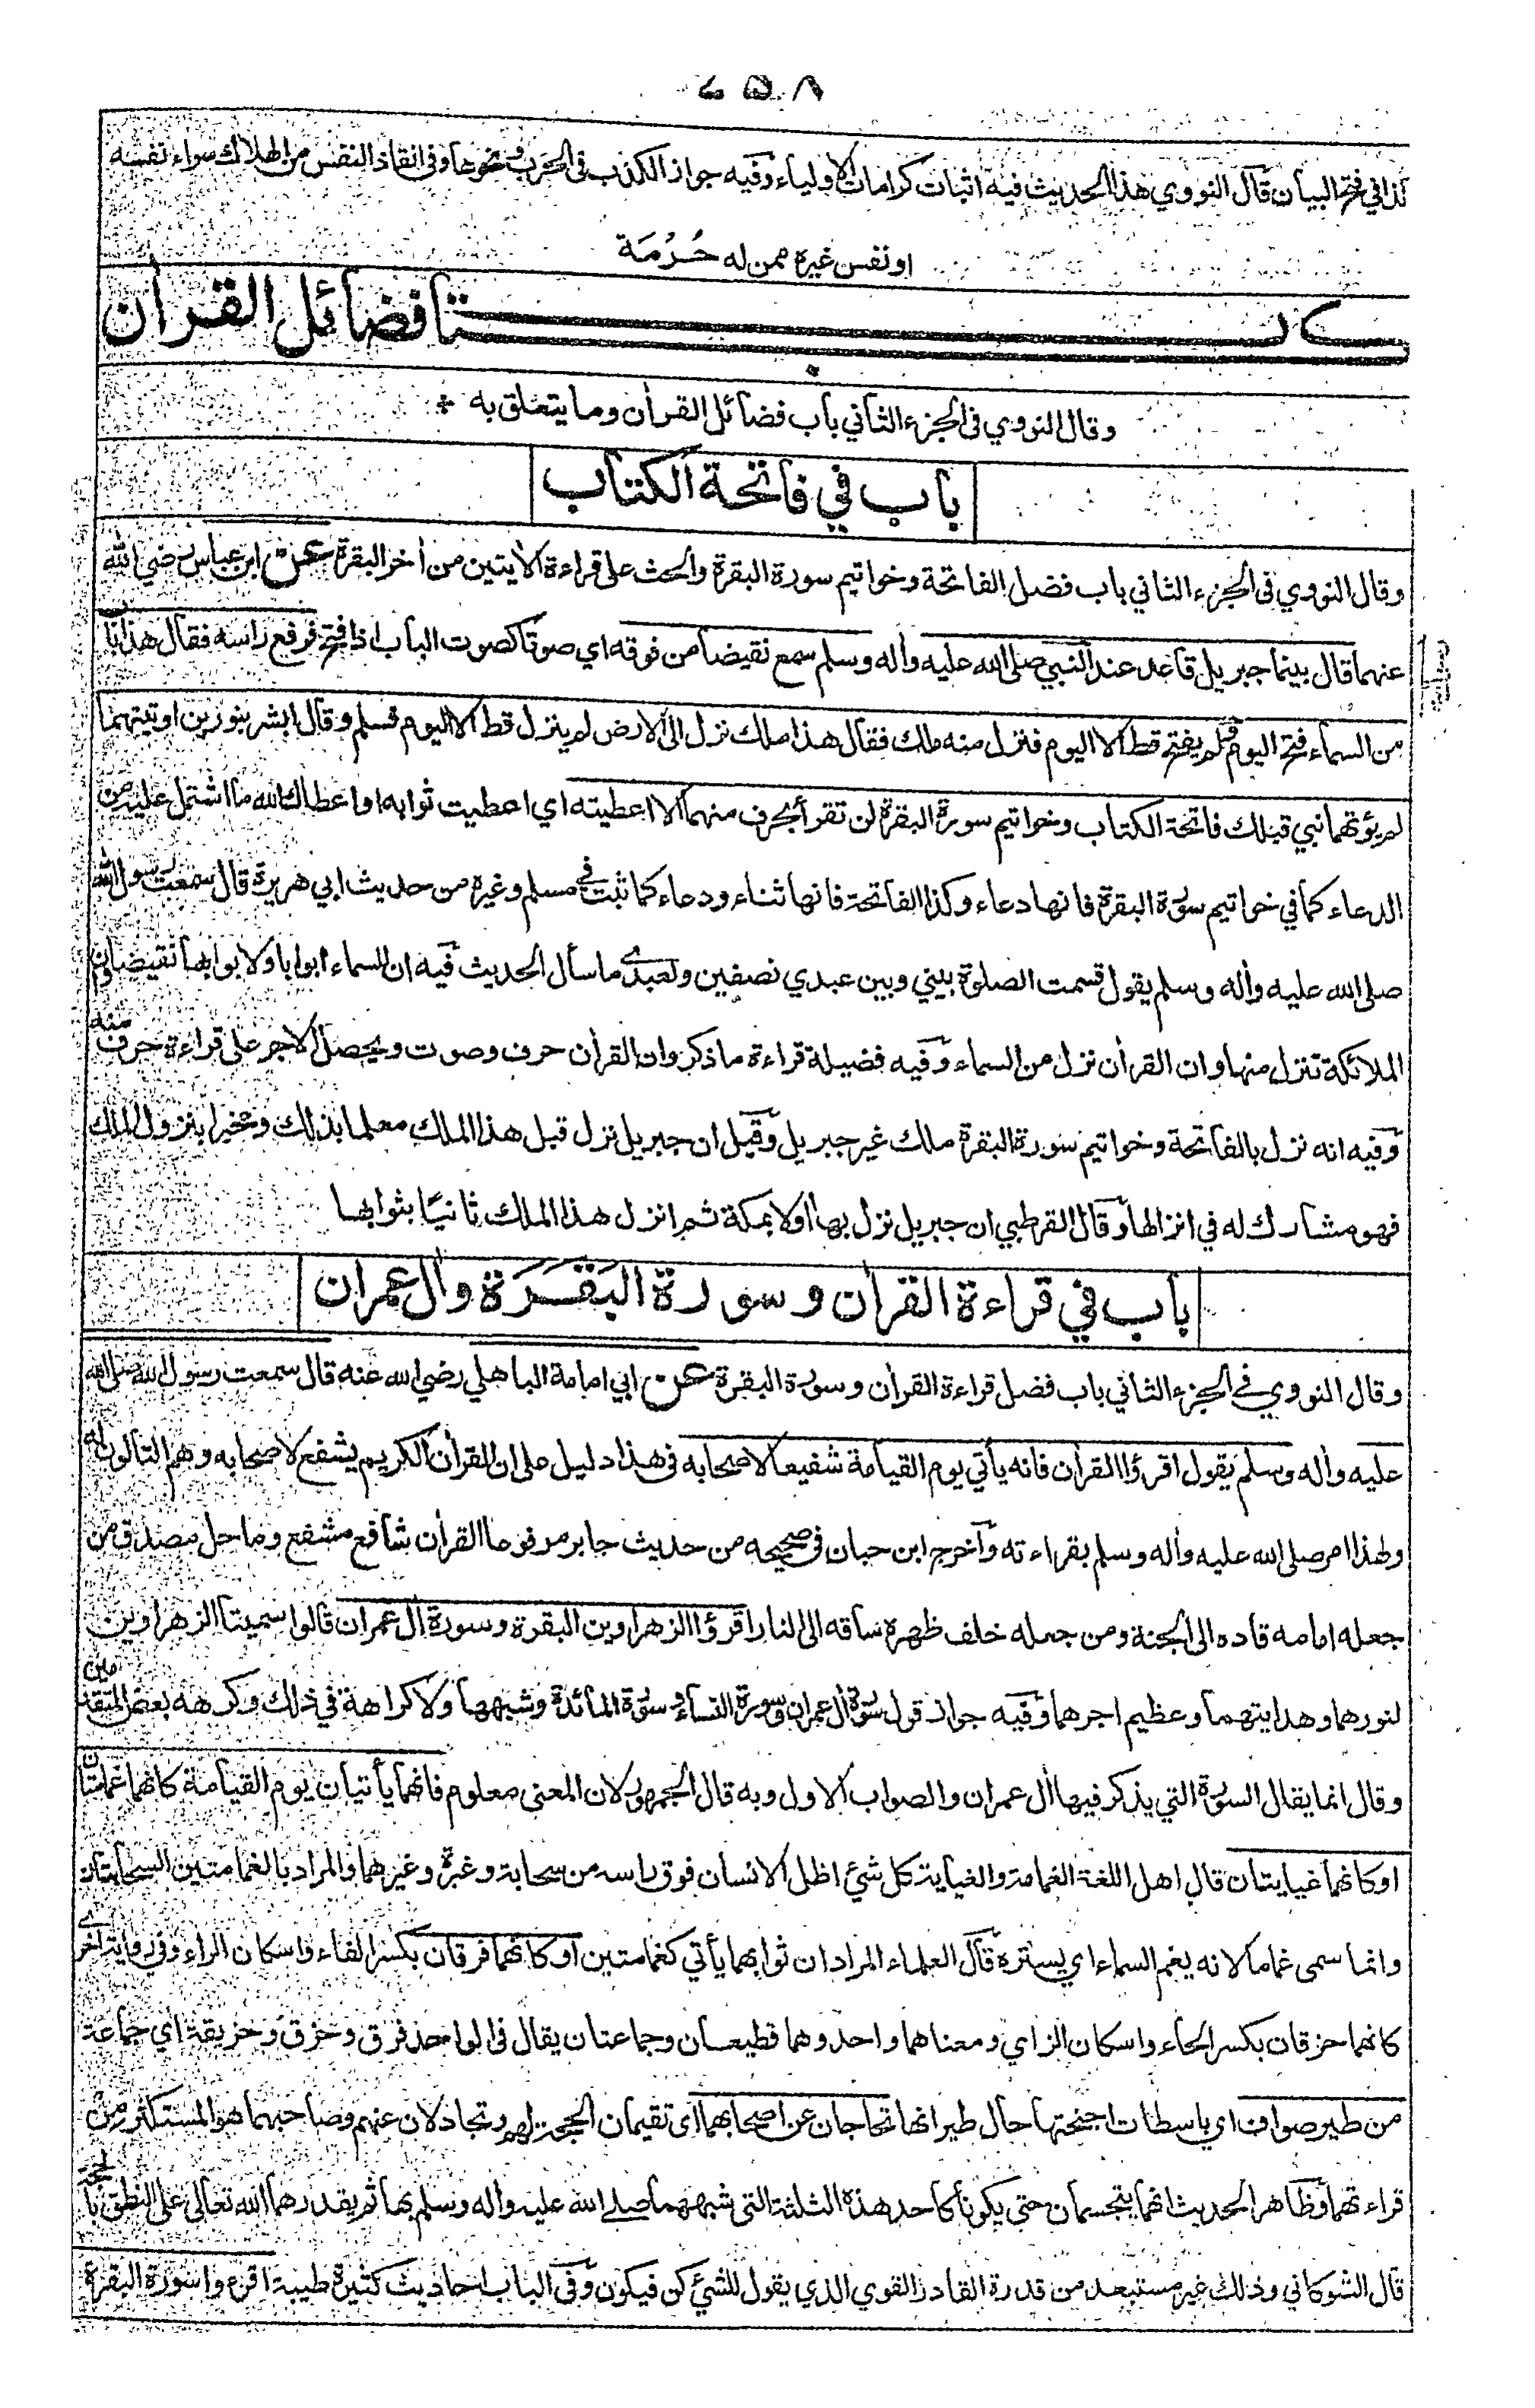 ٤٥٨
كذا في فتح البيان قال النووي هذا الحديث فيه اثبات كرامات الاولياء وفيه جواز الكذب فى الحرب ونحوها وفى انقاذ النفس من الهلاك سواء نفسه
او نفس غيره ممن له حُرْمَة
كتاب فضائل القرآن
وقال النووي فى الجزء الثاني باب فضائل القرأن وما يتعلق به
باب في فاتحة الكتاب
وقال النووي فى الجزء الثاني باب فضل الفاتحة وخواتيم سورة البقرة والحث على قراءة الأيتين من أخر البقرة عن ابن عباس رضي الله
عنهما قال بينما جبريل قاعد عند النبي صلى الله عليه وأله وسلم سمع نقيضا من فوقه اي صوتا كصوت الباب اذا فتح فرفع راسه فقال هذا باب
من السماء فتح اليوم فلم يفتح قط الا اليوم فنزل منه ملك فقال هذا ملك نزل الى الارض لم ينزل قط الا اليوم فسلم وقال ابشر بنورين اوتيتهما
لم يؤتهما نبي قبلك فاتحة الكتاب وخواتيم سورة البقرة لن تقرأ بحرف منهما الا اعطيته اي اعطيت ثوابه او اعطاك الله ما اشتمل عليه من
الدعاء كما في خواتيم سورة البقرة فانها دعاء وكذا الفاتحة فانها ثناء ودعاء كما ثبت في مسلم وغيره من حديث ابي هريرة قال سمعت رسول الله
صلى الله عليه وأله وسلم يقول قسمت الصلوة بيني وبين عبدي نصفين ولعبدي ما سأل الحديث فيه ان للسماء ابوابا ولابوابها نقيضا وان
الملائكة تنزل منها وان القرأن نزل من السماء وفيه فضيلة قراءة ما ذكر وان القرأن حرف وصوت ويحصل الاجر على قراءة حرف منه
وفيه انه نزل بالفاتحة وخواتيم سورة البقرة ملك غير جبريل وقيل ان جبريل نزل قبل هذا الملك معلما بذلك ومخبرا بنزول الملك
فهو مشارك له في انزالها وقال القرطبي ان جبريل نزل بها اولا بمكة ثم انزل هذا الملك ثانيًا بثوابها
باب في قراءة القرأن وسورة البَقَرَة وأل عمران
وقال النووي في الجزء الثاني باب فضل قراءة القرأن وسورة البقرة عن ابي امامة الباهلي رضي الله عنه قال سمعت رسول الله صلى الله
عليه وأله وسلم يقول اقرؤا القرأن فانه يأتي يوم القيامة شفيعا لاصحابه فى هذا دليل على ان القرأن الكريم يشفع لاصحابه وهم التالون له
ولهذا امر صلى الله عليه وأله وسلم بقراءته وأخرج ابن حبان فى صحيحه من حديث جابر مرفوعا القرأن شافع مشفع وماحل مصدق من
جعله امامه قاده الى الجنة ومن جعله خلف ظهره ساقه الى النار اقرؤا الزهراوين البقرة وسورة أل عمران قالوا سميتا الزهراوين
لنورهما وهدايتهما وعظيم اجرهما وفيه جواز قول سورة أل عمران وسورة النساء وسورة المائدة وشبهها ولا كراهة في ذلك وكرهه بعض المتقدمين
وقال انما يقال السورة التي يذكر فيها أل عمران والصواب الاول وبه قال الجمهور لان المعنى معلوم فانهما يأتيان يوم القيامة كانهما غمامتان
او كانهما غيايتان قال اهل اللغة الغمامة والغياية كل شيء اظل الانسان فوق راسه من سحابة وغبرة وغيرهما والمراد بالغمامتين السحابتان
وانما سمى غماما لانه يغم السماء اي يسترها قال العلماء المراد ان ثوابهما يأتي كغمامتين او كانهما فرقان بكسر الفاء واسكان الراء وفى رواية اخرى
كانهما حزقان بكسر الحاء واسكان الزاي ومعناهما واحد وهما قطيعان وجماعتان يقال فى الواحد فرق وحزق وحزيقة اي جماعة
من طير صواف اي باسطات اجنحتها حال طيرانها تحاجان عن اصحابهما اى تقيمان الحجة لهم وتجادلان عنهم وصاحبهما هو المستكثر من
قراءتهما وظاهر الحديث انهما يتجسمان حتى يكونا كاحد هذه الثلثة التى شبههما صلى الله عليه واله وسلم بها ثم يقدرهما الله تعالى على النطق بالحجة
قال الشوكاني وذلك غير مستبعد من قدرة القادر القوي الذي يقول للشيء كن فيكون وفى الباب احاديث كثيرة طيبة اقرءوا سورة البقرة